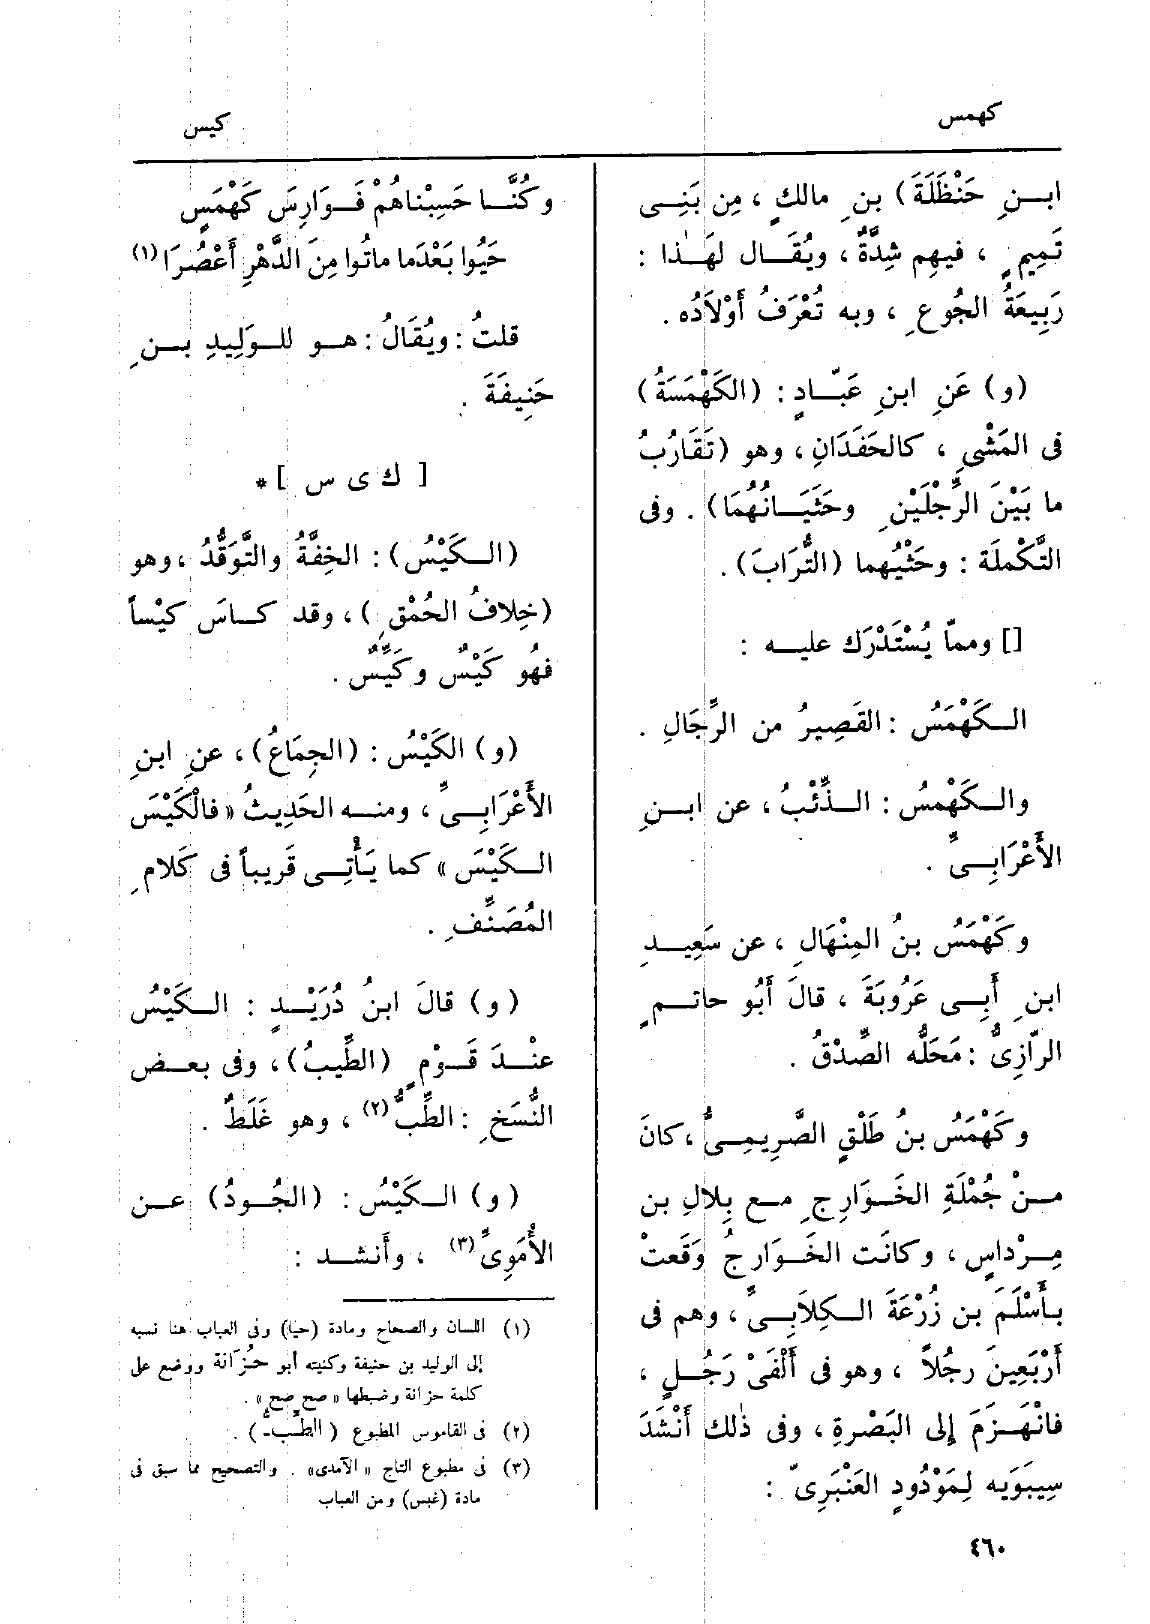 كهمس
كيس
ابنِ حَنْظَلَةَ) بنِ مالكٍ ، مِن بَنِى
تَمِيمٍ ، فيهِم شِدَّةٌ ، ويُقَال لهٰذا :
رَبِيعَةُ الجُوعِ ، وبه تُعْرَفُ أَوْلَادُه .
(و) عَنِ ابنِ عَبّادٍ : (الكَهْمَسَةُ)
فى المَشْىِ ، كالحَفَدَانِ ، وهو (تَقَارُبُ
ما بَيْنَ الرِّجْلَيْنِ وحَثَيَانُهُمَا) . وفى
التَّكْمِلَة : وحَثْيُهما (التُّرَابَ) .
[] وممّا يُسْتَدْرَك عليه :
الكَهْمَسُ : القَصِيرُ من الرِّجَالِ .
والكَهْمسُ : الذِّئْبُ ، عن ابنِ
الأَعْرَابِىِّ .
وكَهْمَسُ بنُ المِنْهَالِ ، عن سَعِيدِ
ابنِ أَبِى عَرُوبَةَ ، قالَ أَبُو حاتمٍ
الرّازِىُّ : مَحَلُّه الصِّدْقُ .
وكَهْمَسُ بنُ طَلْقٍ الصَّرِيمِىُّ ، كانَ
منْ جُمْلَةِ الخَوَارِجِ مع بِلالِ بن
مِرْداسٍ ، وكانَت الخَوَارجُ وَقَعتْ
بأَسْلَمَ بن زُرْعَةَ الكِلَابِىِّ ، وهم فى
أَرْبَعِينَ رجُلاً ، وهو فى أَلْفَىْ رَجُلٍ ،
فانْهَزَمَ إِلى البَصْرةِ ، وفى ذٰلك أَنْشَدَ
سِيبَوَيه لِمَوْدُودٍ العَنْبَرِىّ :
وكُنَّا حَسِبْناهُمْ فَوَارِسَ كَهْمَسٍ
حَيُوا بَعْدَما ماتُوا مِنَ الدَّهْرِ أَعْصُرَا (١)
قلتُ : ويُقَالُ : هو للوَلِيدِ بنِ
حَنِيفَةَ .
[ ك ى س ] *
(الكَيْسُ) : الخِفَّةُ والتَّوَقُّدُ ، وهو
(خِلافُ الحُمْقِ) ، وقد كاسَ كَيْساً
فهُو كَيْسٌ وكَيِّسٌ .
(و) الكَيْسُ : (الجِمَاعُ) ، عنِ ابنِ
الأَعْرَابِىِّ ، ومنه الحَدِيثُ « فالْكَيْسَ
الكَيْسَ » كما يَأْتِى قَرِيباً فى كَلامِ
المُصَنِّفِ .
(و) قالَ ابنُ دُرَيْدٍ : الكَيْسُ
عنْدَ قَوْمٍ (الطِّيبُ) ، وفى بعض
النُّسَخِ : الطِّبُّ (٢) ، وهو غَلَطٌ .
(و) الكَيْسُ : (الجُودُ) عن
الأُمَوِىِّ (٣) ، وأَنشد :
(١) اللسان والصحاح ومادة (حيا) وفى العباب هنا نسبه
إلى الوليد بن حنيفة وكنيته أبو حُزَانة ووضع على
كلمة حزانة وضبطها « صح صح » .
(٢) فى القاموس المطبوع ( الطَّبُّ ) .
(٣) فى مطبوع التاج « الآمدى» . والتصحيح مما سبق فى
مادة (غبس) ومن العباب
٤٦٠